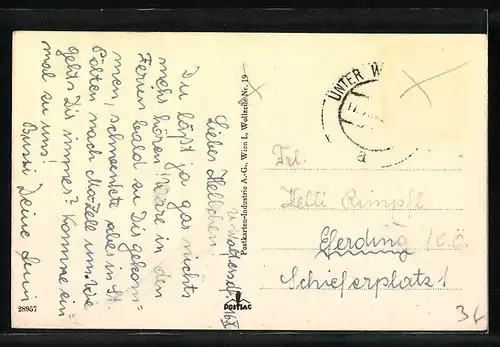 Unterwaltersdf. 16.X
Liebes Hellchen!
Du läßt ja gar nichts
mehr hören! Wäre in den
Ferien bald zu Dir gekom-
men, schwenkte aber in St.
Pölten nach Mazell um. Wie
geht's Dir immer? Komme ein-
mal zu uns!
Bussi Deine
Postkarten-Industrie A.-G., Wien I., Wollzeile Nr. 19
POSTIAG
28957
UNTER W
Frl.
Helli Rumpfl
Eferding, O.Ö.
Schieferplatz 1